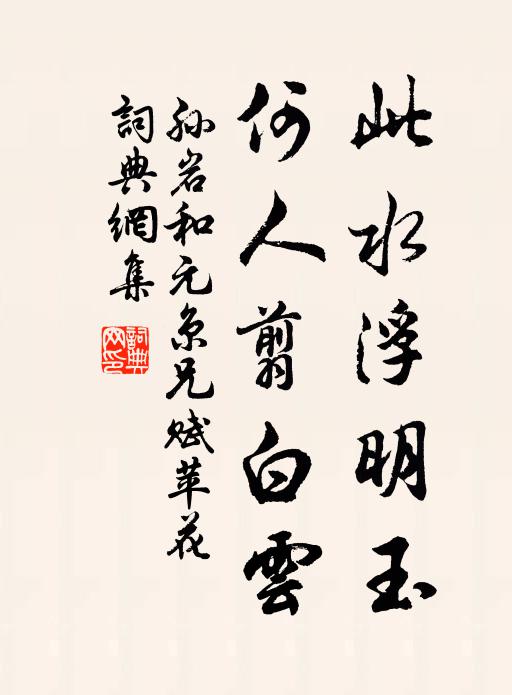 此水浮明玉
何人翦白雲
孙岩和元京兄赋苹花
詞典網集
詞典網印